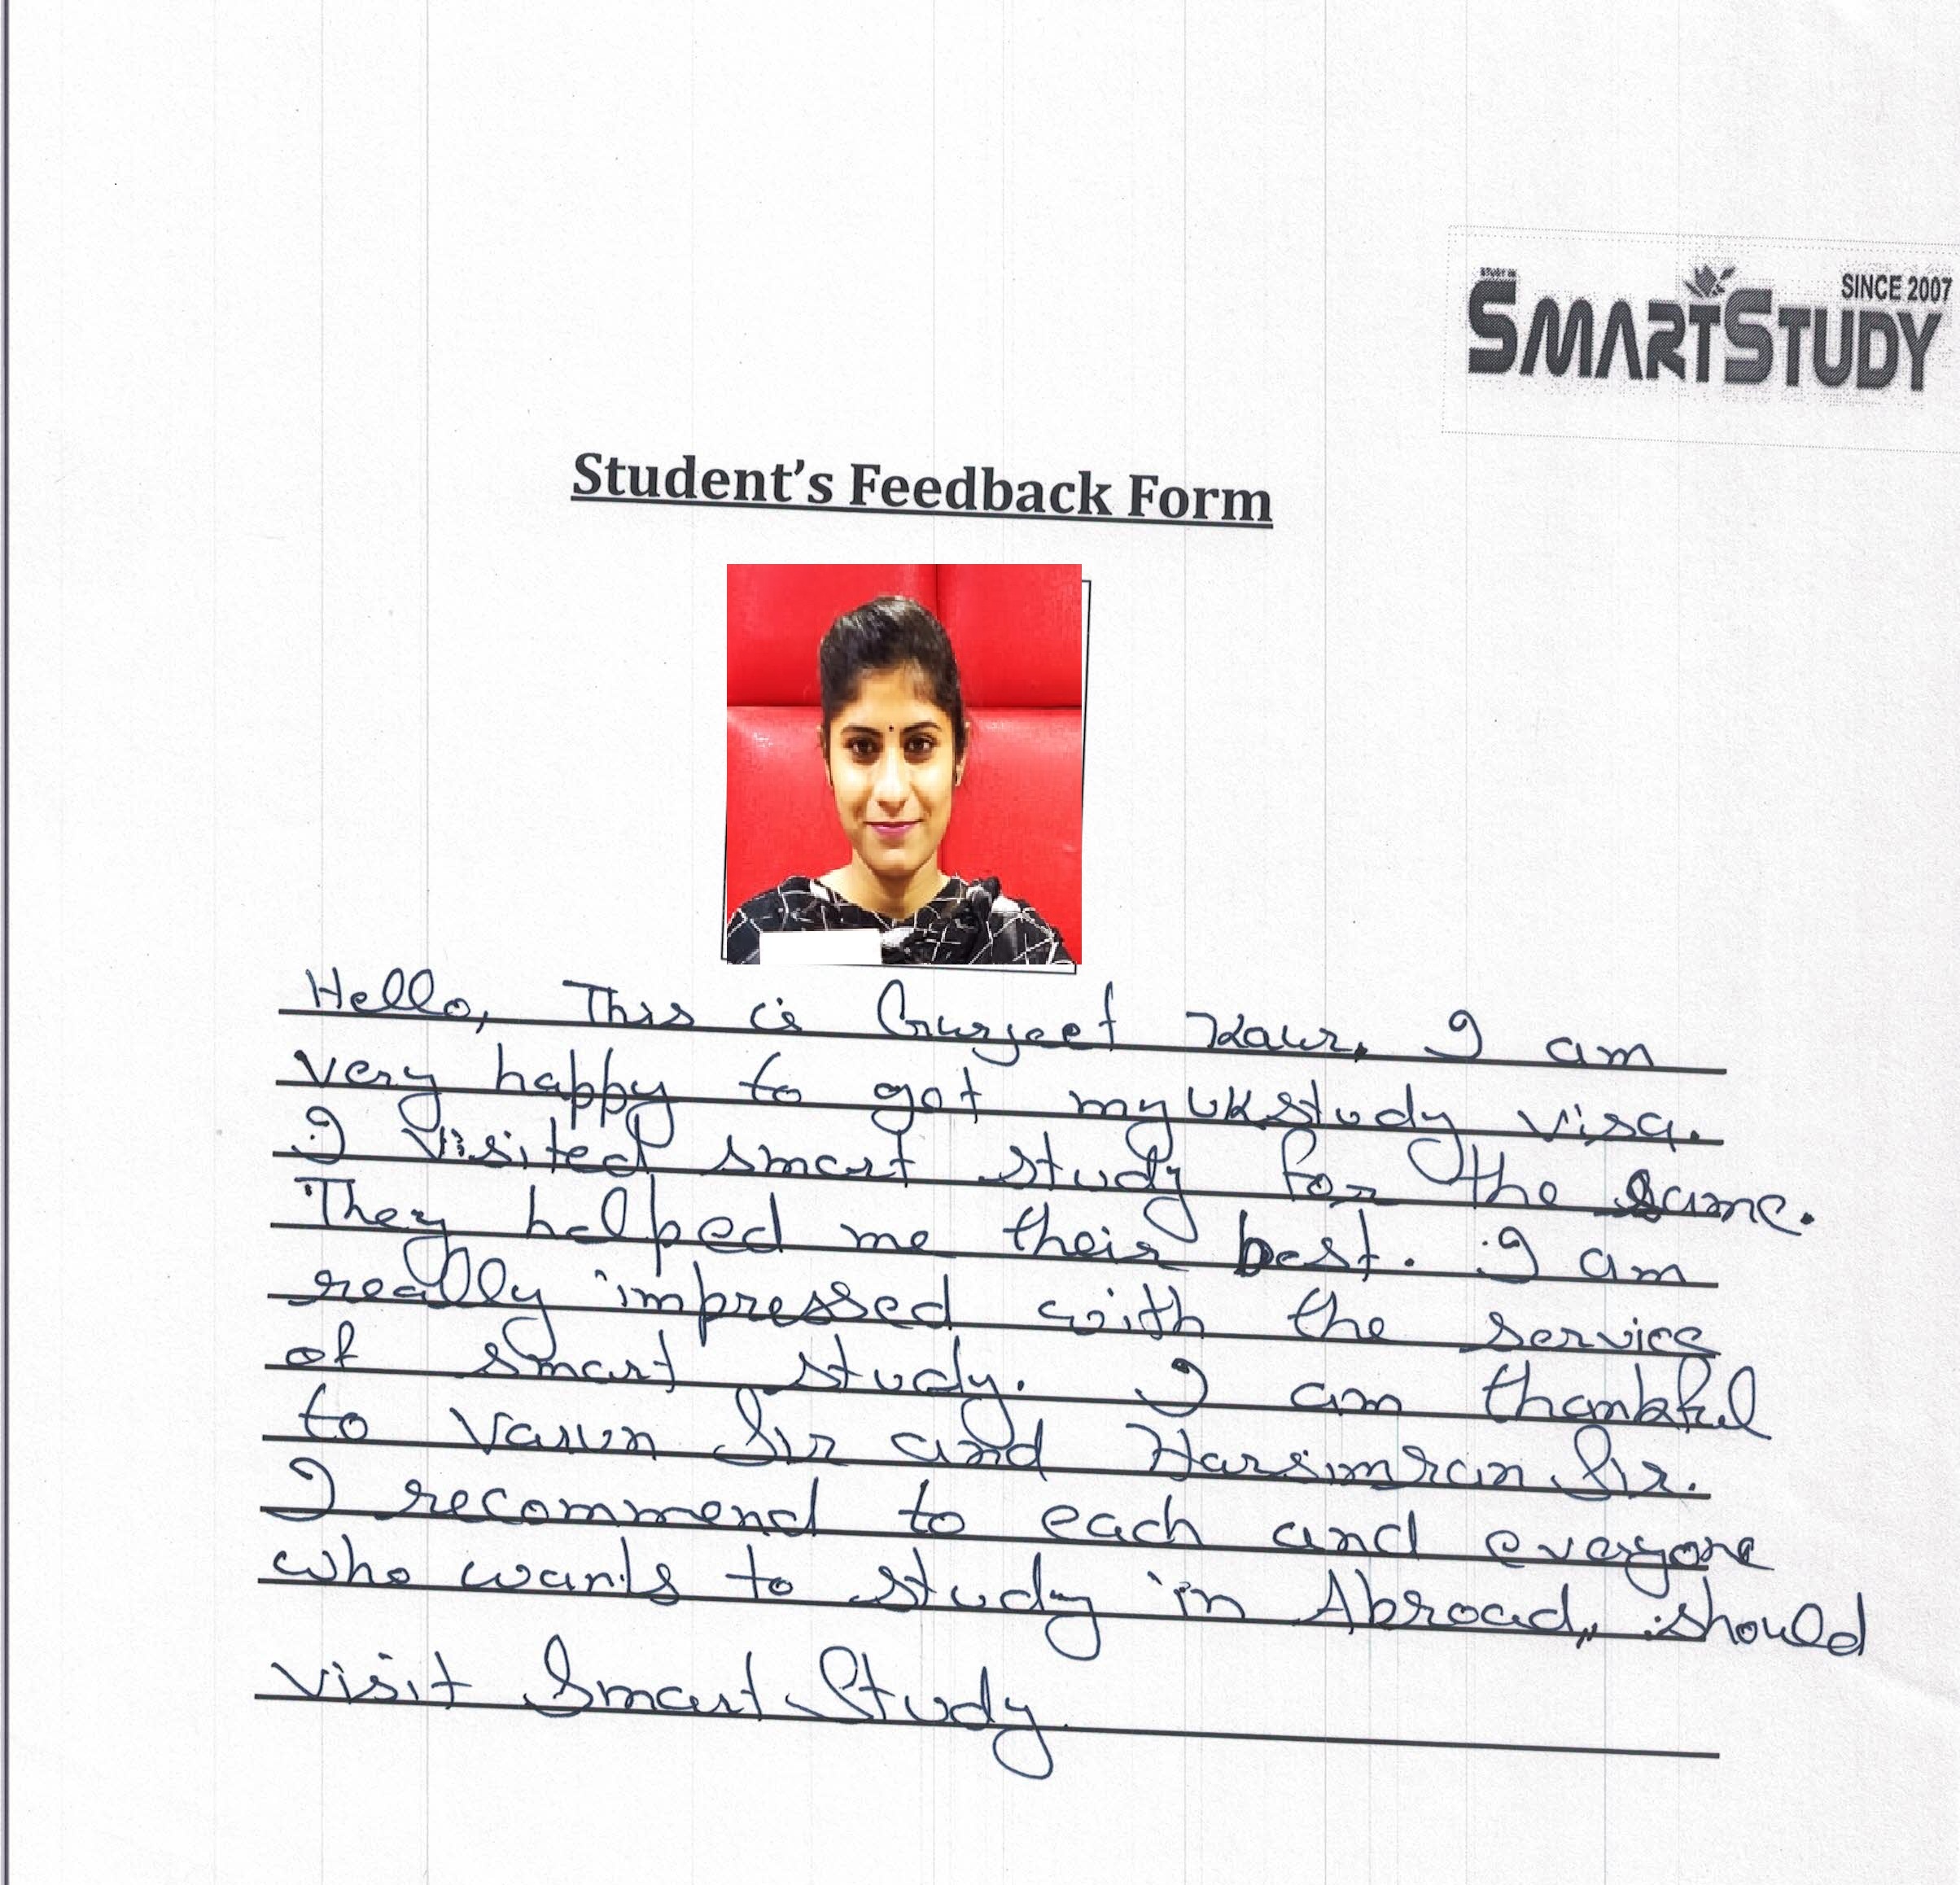 STUDY IN
SINCE 2007
SMARTSTUDY
Student's Feedback Form
Hello, This is Gurjeet Kaur. I am
very happy to got my UK study visa.
I visited smart study for the same.
They helped me their best. I am
really impressed with the service
of smart study. I am thankful
to Varun Sir and Harsimran Sir.
I recommend to each and everyone
who wants to study in Abroad, should
visit Smart Study.